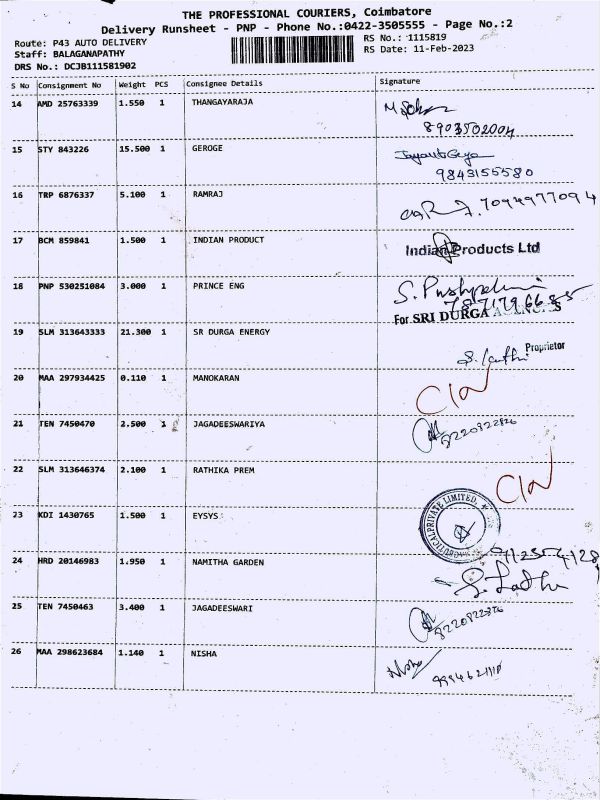 THE PROFESSIONAL COURIERS, Coimbatore
Delivery Runsheet - PNP - Phone No.:0422-3505555 - Page No.:2
Route: P43 AUTO DELIVERY
Staff: BALAGANAPATHY
DRS No.: DCJB111581902
RS No.: 1115819
RS Date: 11-Feb-2023
S No Consignment No Weight PCS Consignee Details Signature
14 AMD 25763339 1.550 1 THANGAYARAJA
8903502004
15 STY 843226 15.500 1 GEROGE
9843155580
16 TRP 6876337 5.100 1 RAMRAJ 7094977094
17 BCM 859841 1.500 1 INDIAN PRODUCT Indian Products Ltd
18 PNP 530251084 3.000 1 PRINCE ENG
For SRI DURGA AGENCIES
19 SLM 313643333 21.300 1 SR DURGA ENERGY
Proprietor
20 MAA 297934425 0.110 1 MANOKARAN
21 TEN 7450470 2.500 1 JAGADEESWARIYA 8220822826
22 SLM 313646374 2.100 1 RATHIKA PREM
23 KDI 1430765 1.500 1 EYSYS
PRIVATE LIMITED
24 HRD 20146983 1.950 1 NAMITHA GARDEN
25 TEN 7450463 3.400 1 JAGADEESWARI 8220822826
26 MAA 298623684 1.140 1 NISHA Nisha